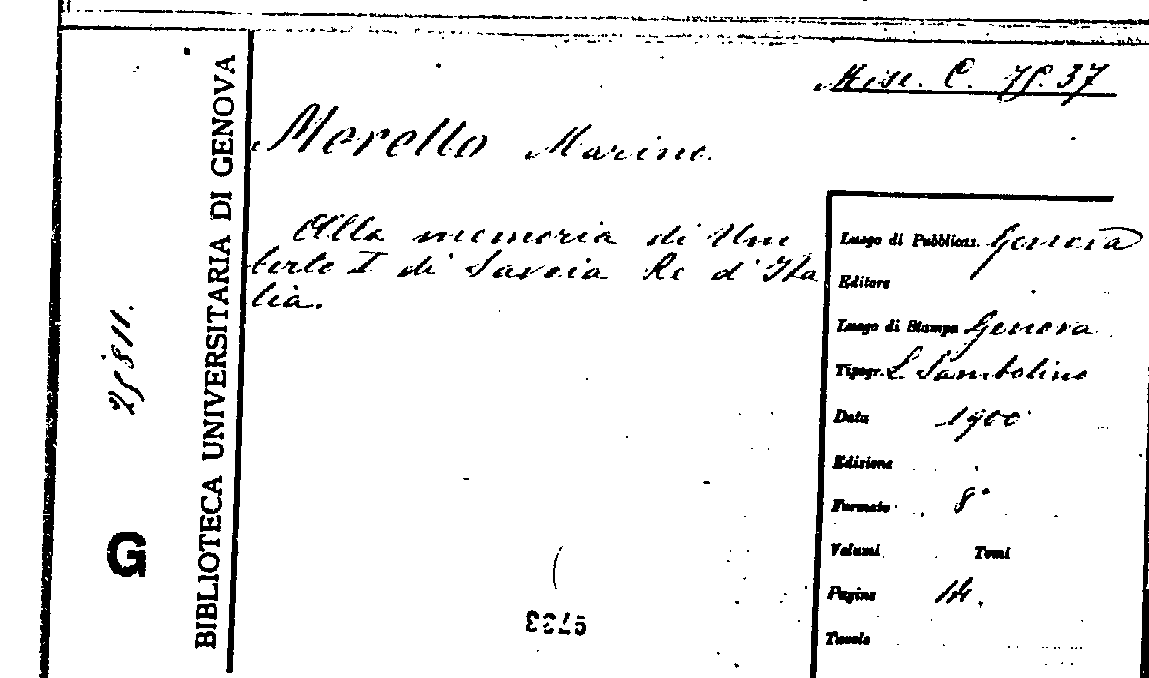 Misc. C. 75.37
Morello Marino.
Alla memoria di Um
berto I di Savoia Re d'Ita
lia.
BIBLIOTECA UNIVERSITARIA DI GENOVA
G
Luogo di Pubblicaz. Genova
Editore
Luogo di Stampa Genova
Tipogr. L. Sambolino
Data 1900
Edizione
Formato 8°
Volumi Tomi
Pagine 14.
Tavole